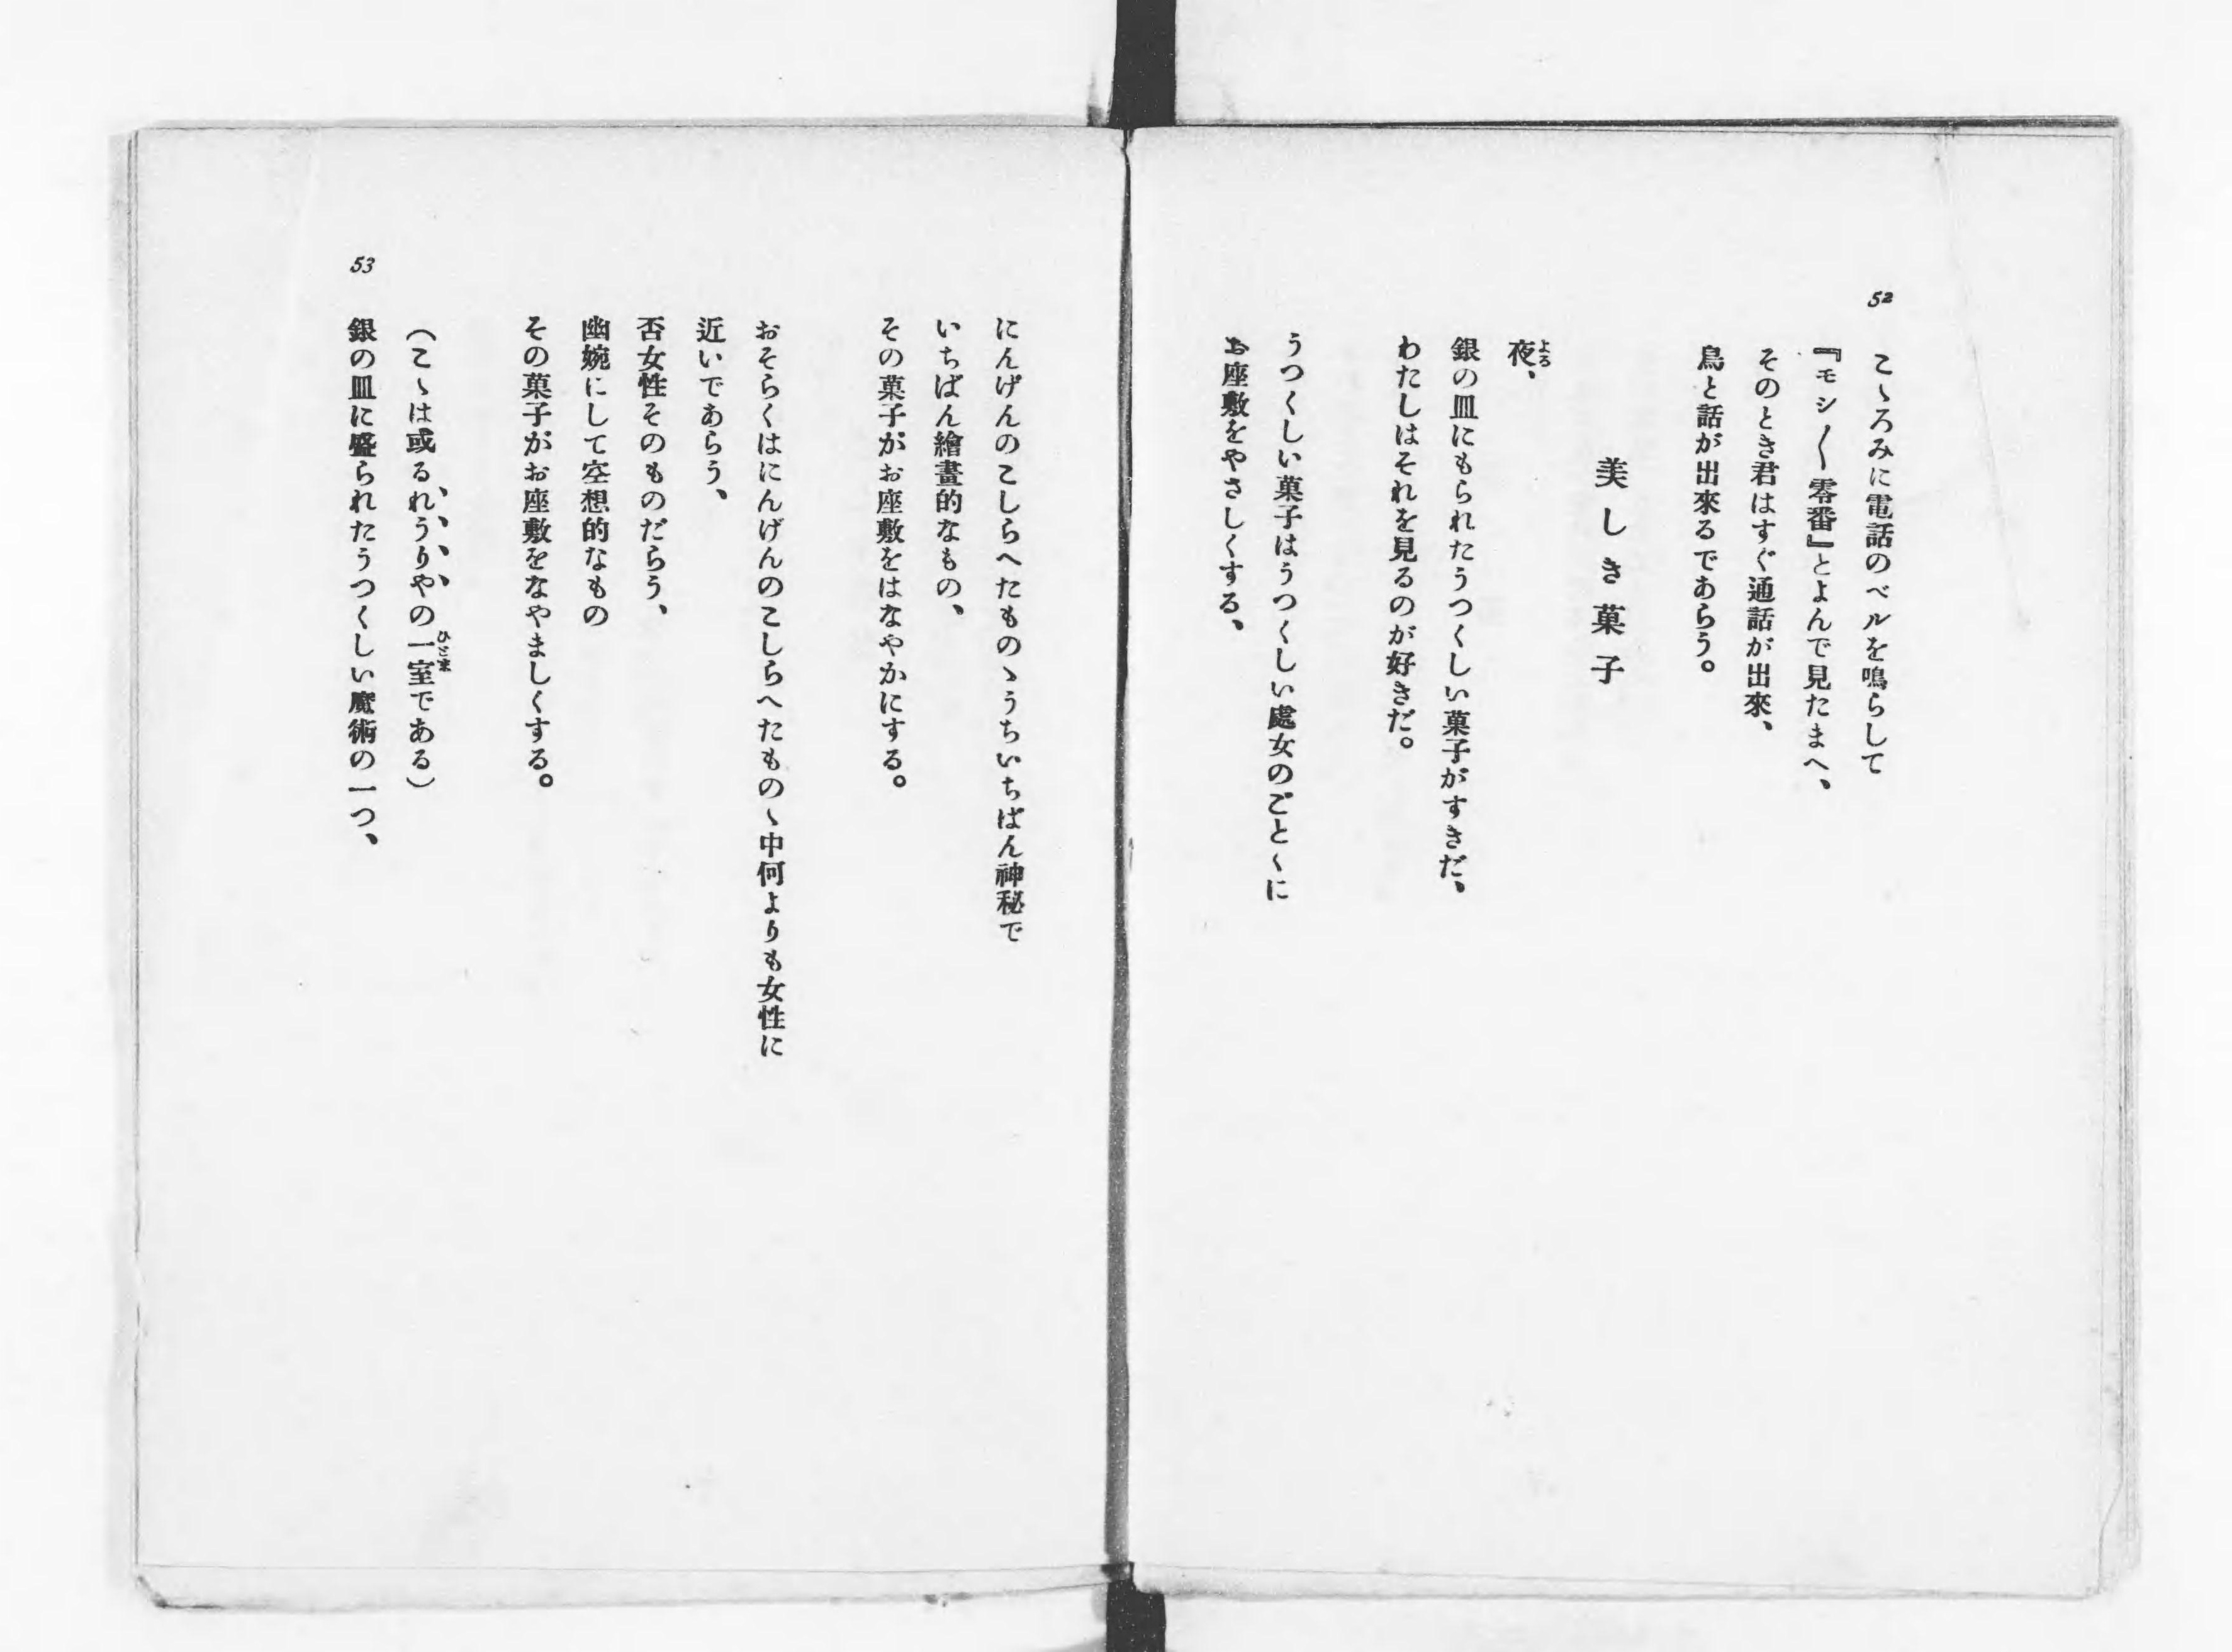 52
こゝろみに電話のベルを鳴らして
『モシ〳〵零番』とよんで見たまへ、
そのとき君はすぐ通話が出來、
鳥と話が出來るであらう。
美しき菓子
夜、
よる
銀の皿にもられたうつくしい菓子がすきだ、
わたしはそれを見るのが好きだ。
うつくしい菓子はうつくしい處女のごとくに
お座敷をやさしくする、
にんげんのこしらへたものゝうちいちばん神秘で
いちばん繪畫的なもの、
その菓子がお座敷をはなやかにする。
おそらくはにんげんのこしらへたものゝ中何よりも女性に
近いであらう、
否女性そのものだらう、
幽婉にして空想的なもの
その菓子がお座敷をなやましくする。
(こゝは或るれうりやの一室である)
ひとま
53
銀の皿に盛られたうつくしい魔術の一つ、